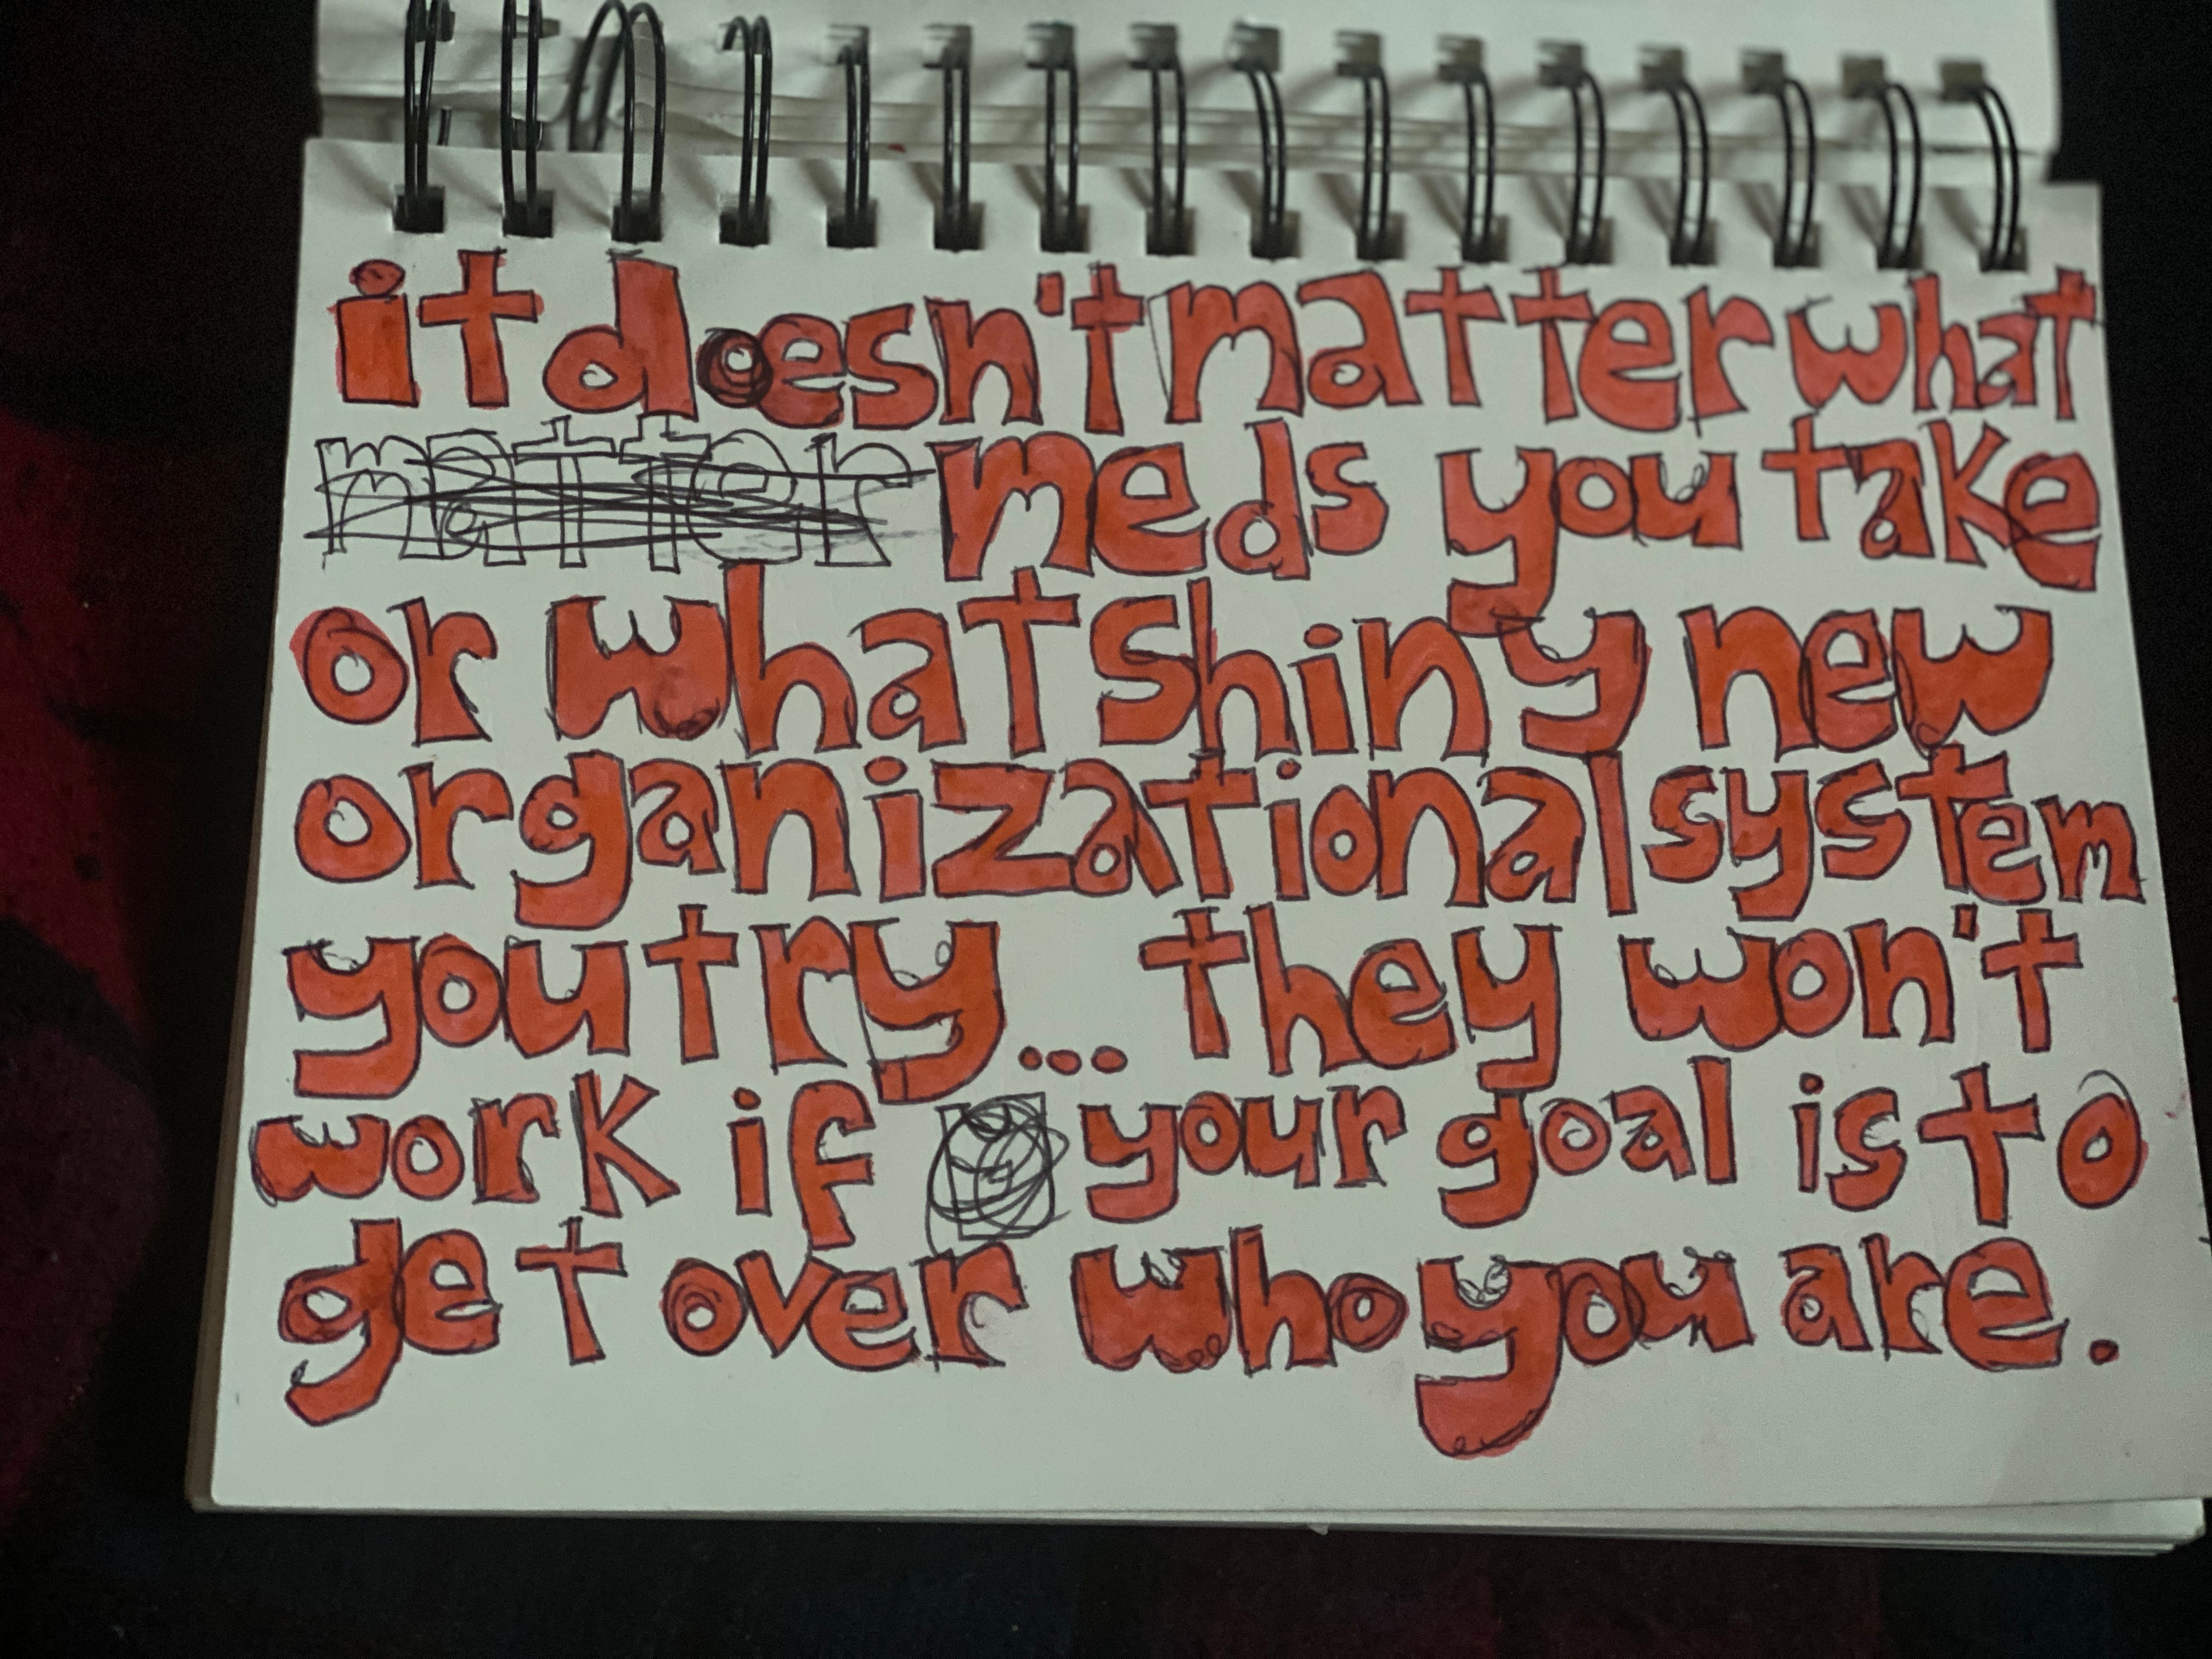 it doesn't matter what
matter meds you take
or what shiny new
organizational system
you try... they won't
work if your goal is to
get over who you are.